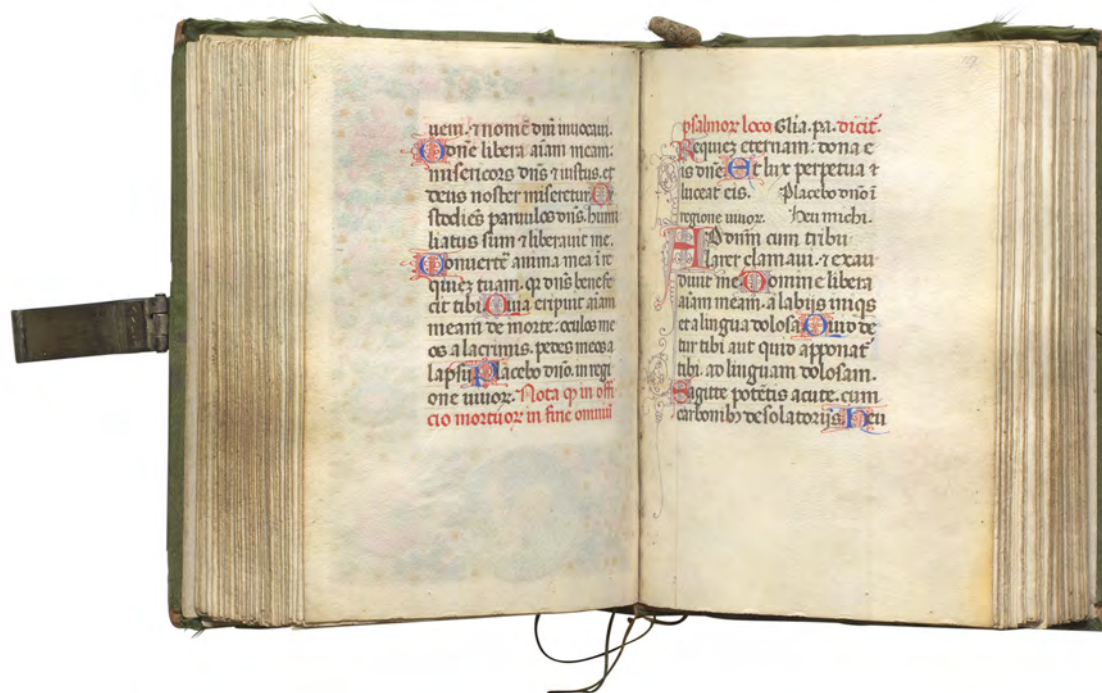 ueni. ⁊ nomē dn̄i inuocaui.
O dn̄e libera aīam meam:
misericors dn̄s ⁊ iustus. et
deus noster miseretur. Cu
stodiēs paruulos dn̄s. humi
liatus sum ⁊ liberauit me.
Conuertē anima mea ī re
quiez tuam. qꝛ dn̄s benefe
cit tibi. Quia eripuit aīam
meam de morte: oculos me
os a lacrimis. pedes meos a
lapsu. Placebo dn̄o. in regi
one uiuoꝝ. Nota ꝙ in offi
cio mortuoꝝ in fine omniū
psalmoꝝ loco Gl̄ia. pa. dicit̄.
Requiez eternam: dona e
is dn̄e. Et lux perpetua ⁊
luceat eis. Placebo dn̄o ī
regione uiuoꝝ. Heu michi.
AD dn̄m cum tribu
larer clamaui. ⁊ exau
diuit me. Domine libera
aīam meam. a labijs iniqs
et a lingua dolosa. Quid de
tur tibi aut quid apponat̄
tibi. ad linguam dolosam.
Sagitte potētis acute. cum
carbonibꝫ desolatorijs. Heu